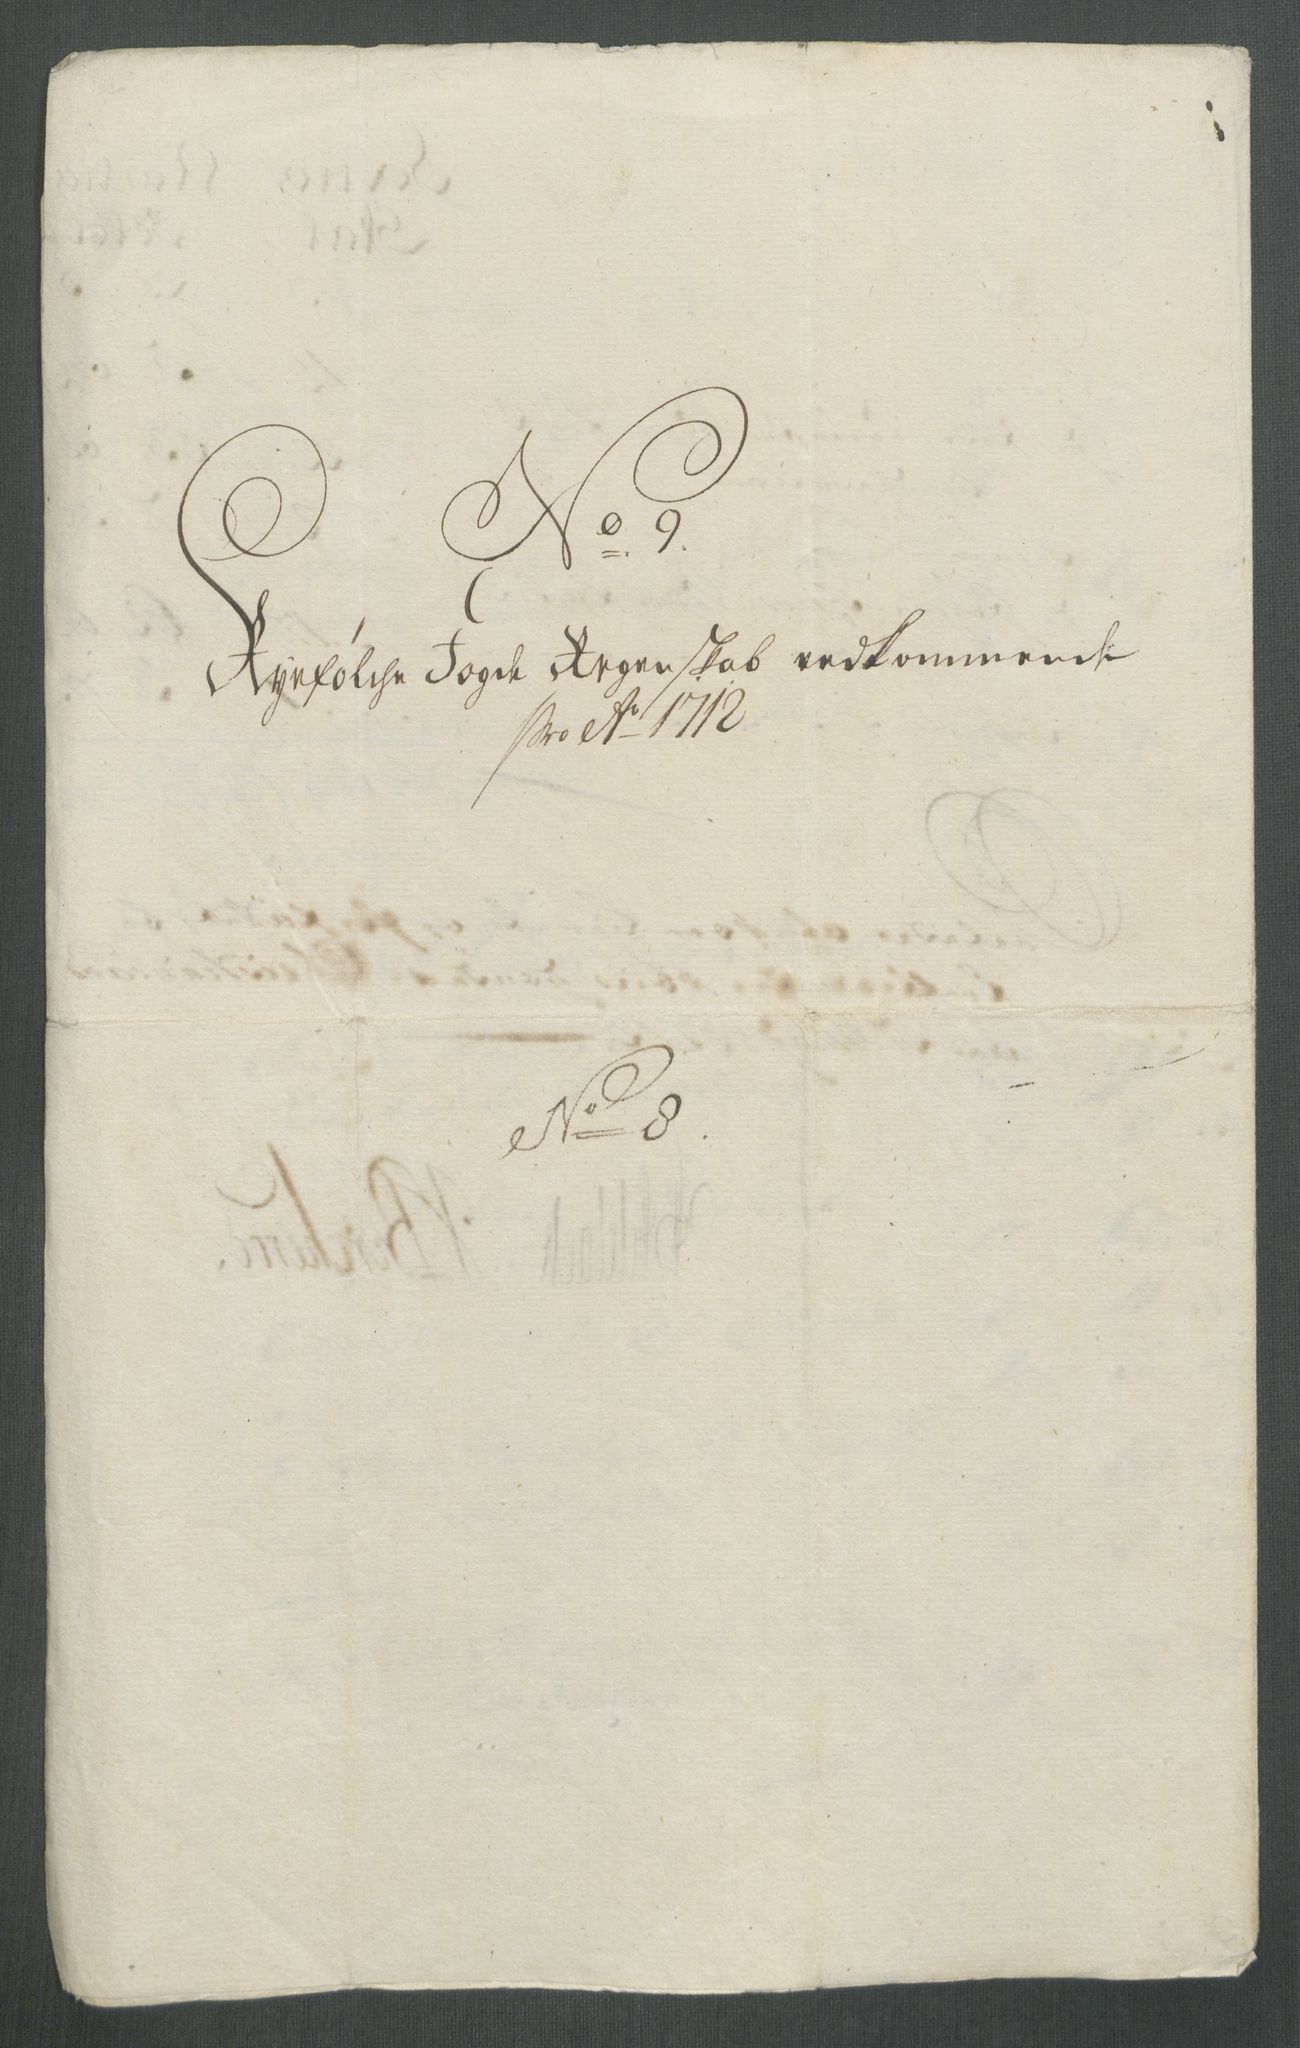 No 9.
Ryefölche Fogde Regenskab vedkommende
Pro Ao 1712
No 8.